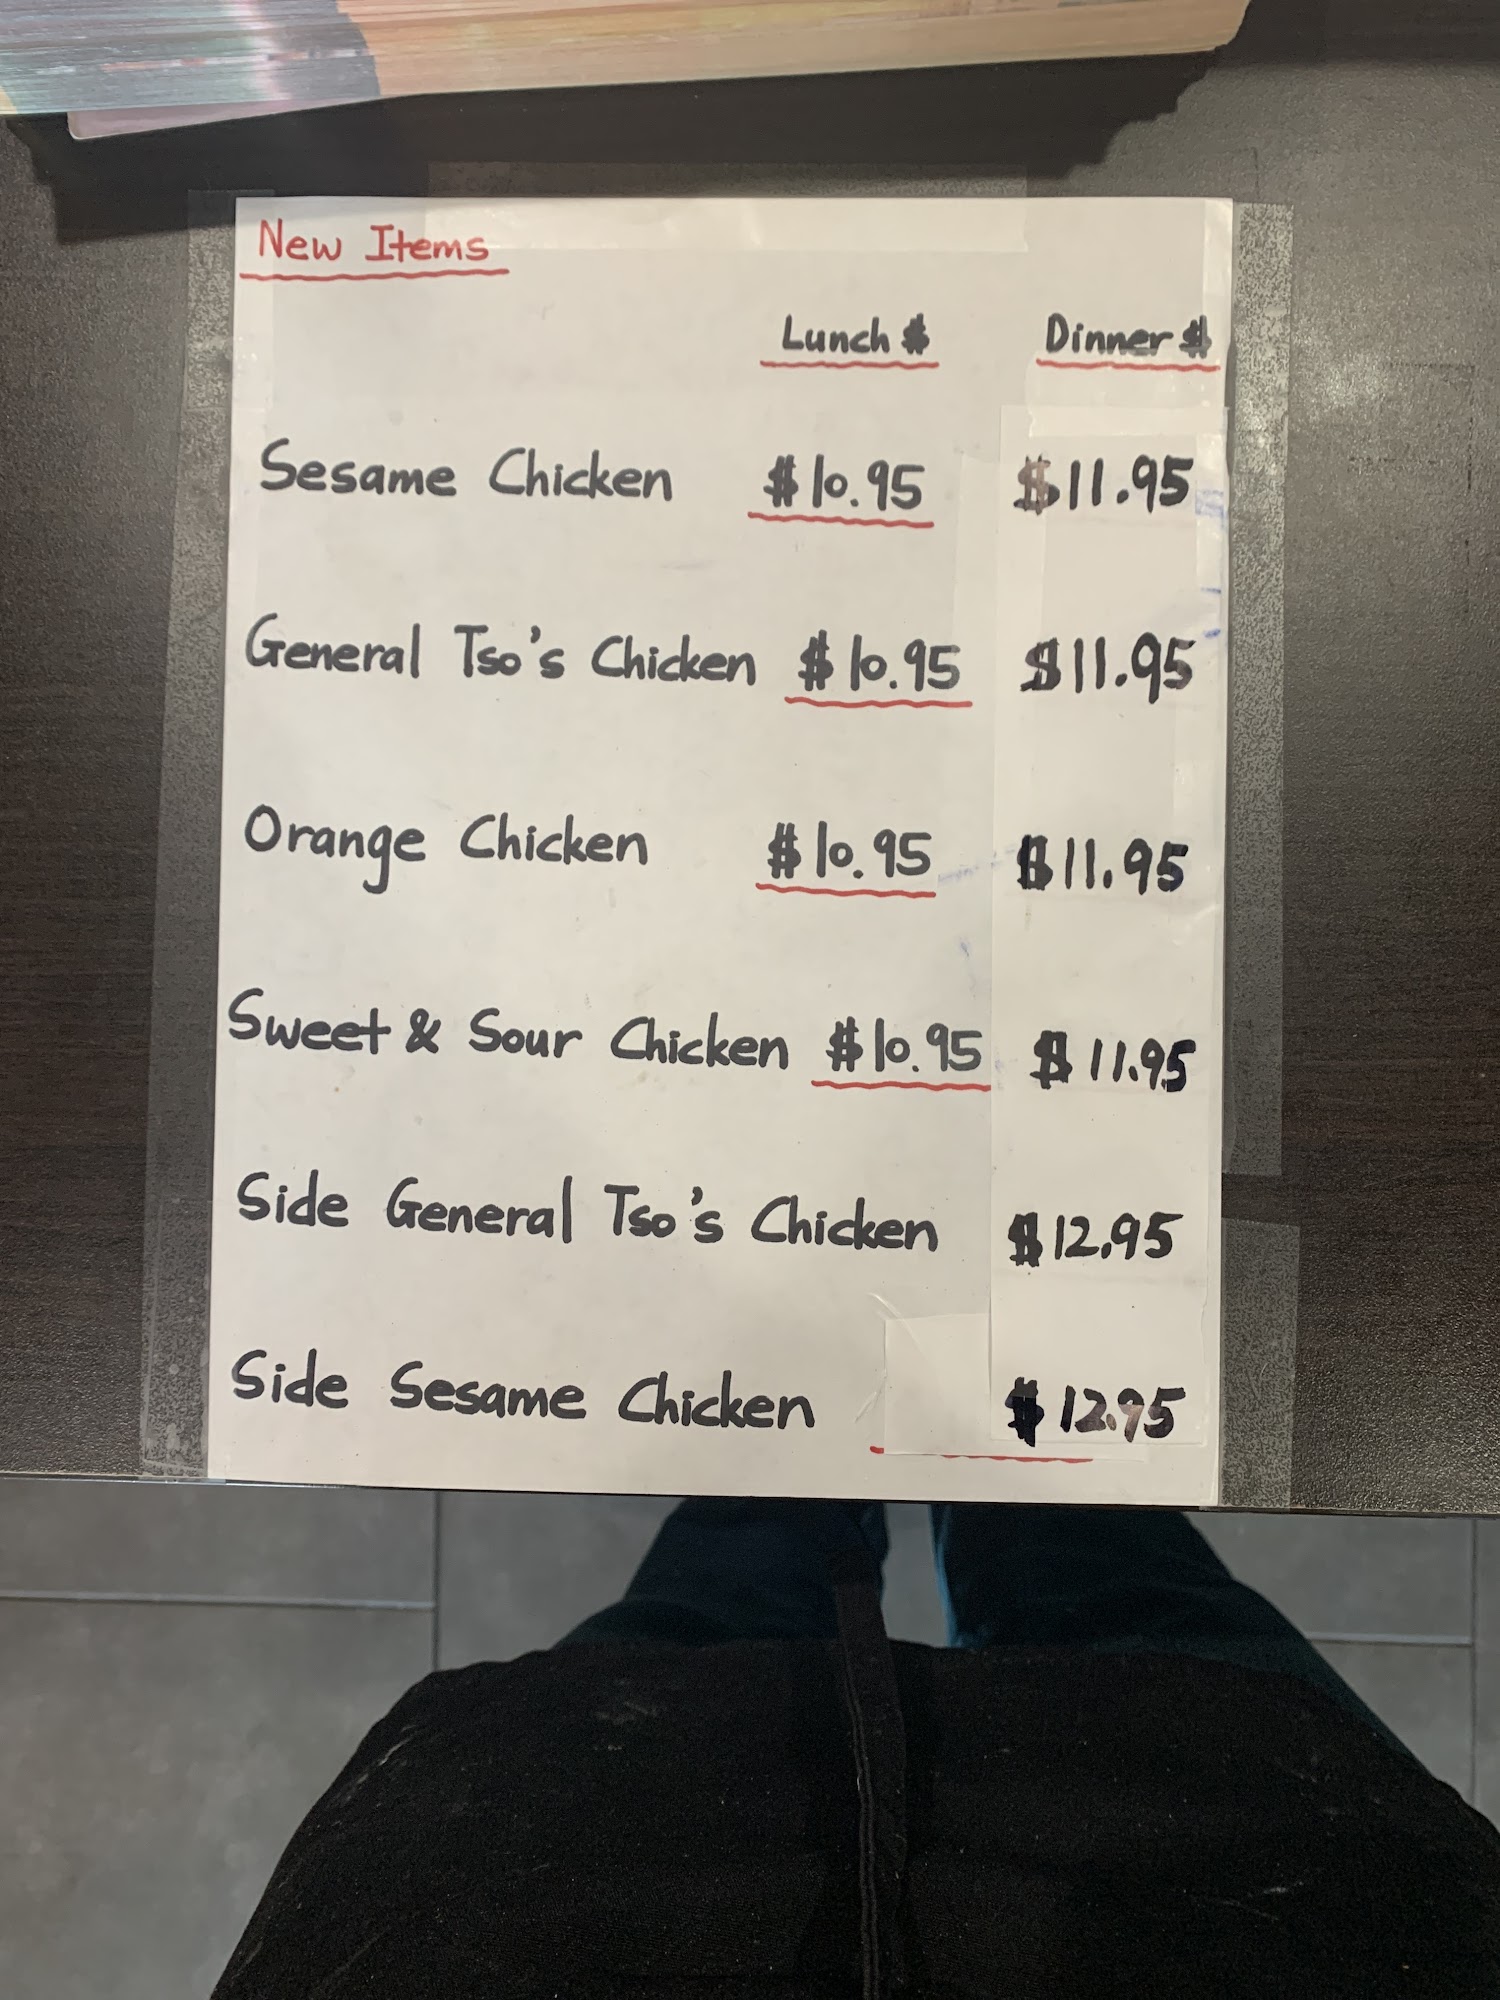 New Items
Lunch $ Dinner $
Sesame Chicken $10.95 $11.95
General Tso's Chicken $10.95 $11.95
Orange Chicken $10.95 $11.95
Sweet & Sour Chicken $10.95 $11.95
Side General Tso's Chicken $12.95
Side Sesame Chicken $12.95